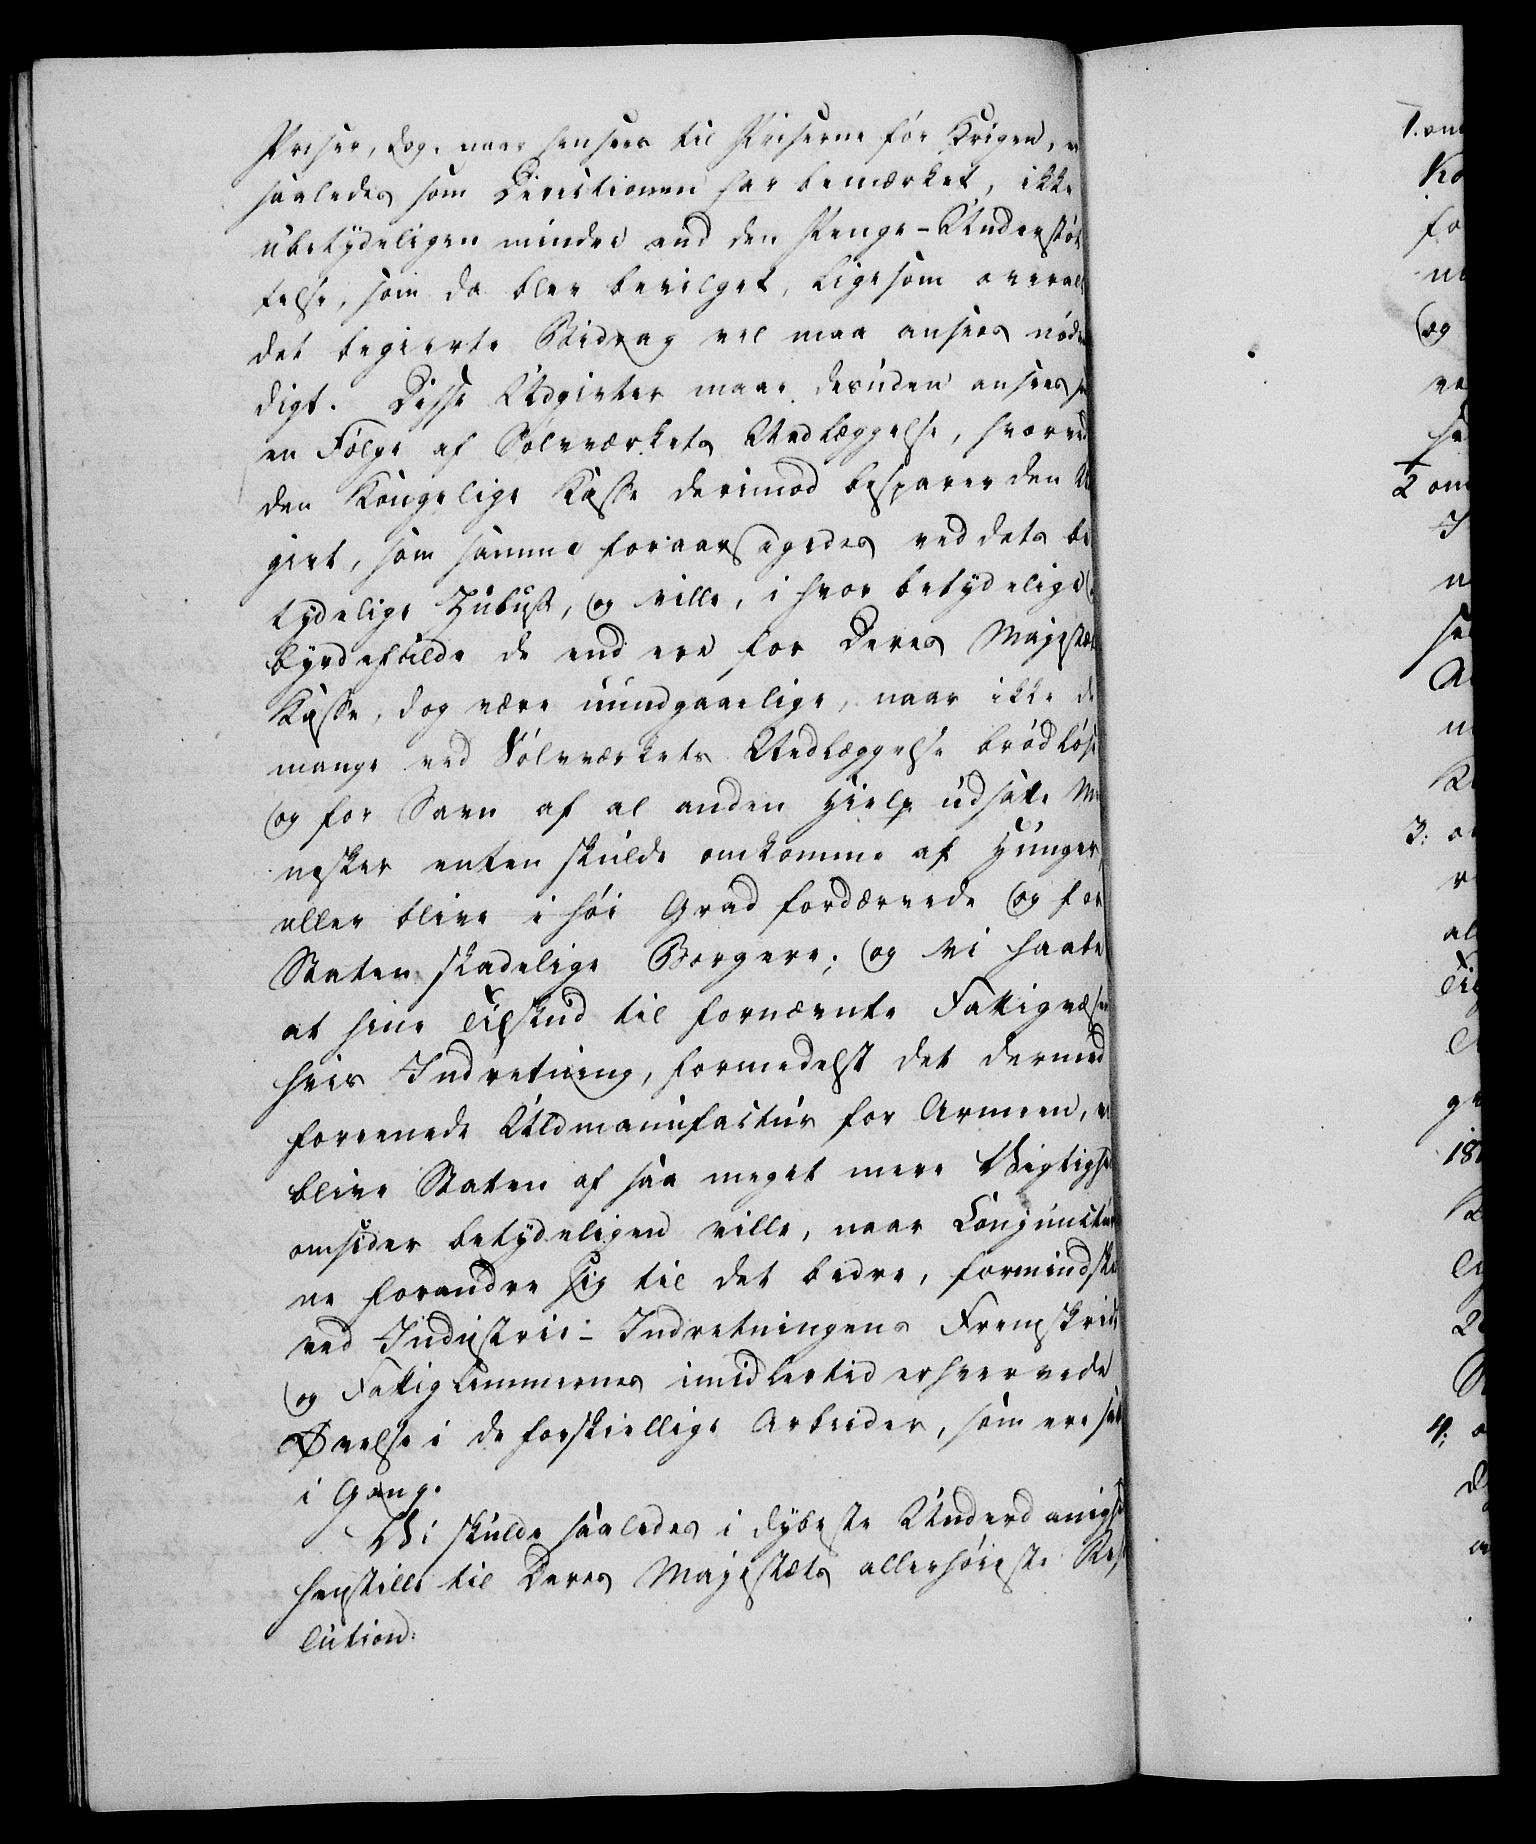 Priser, dog, naar hensees til Priserne før Krigen, er
saaledes som Directionen har bemærket, ikke
ubetydeligen mindre end den Penge-Understøt
telse, som da blev bevilget, ligesom overalt
det begierte Bidrag vel maa ansees nødven
digt. Disse Udgivter maae desuden ansees
en Følge af Sølvværkets Nedlæggelse, hvorved
den Kongelige Kasse derimod besparer den Ud
givt, som samme foraarsagedes ved dets be
tydelige Zubusse, og ville, i hvor betydelige
byrdefulde de end ere for Deres Majestæts
Kasse, dog være uundgaaelige, naar ikke de
mange ved Sølvværkets Nedlæggelse brødløse
og for Savn af al anden Hielp udsatte Men
nesker enten skulde omkomme af Hunger,
eller blive i høi Grad fordærvede og for
Staten skadelige Borgere; og vi haabe
at hine Tilskud til fornævnte Fattigvæsen
hvis Indretning, formedelst det dermed
foreenede Uldmanufactur for Armeen, vil
blive Staten af saa meget mere Vigtighed
omsider betydeligen ville, naar Conjunctur
ne forandre sig til det bedre, formindskes
ved Industrie-Indretningens Fremskridt
og Fattiglemmernes imidlertid erhvervede
Øvelse i de forskiellige Arbeider, som ere sat
i Gang.
Vi skulde saaledes i dybeste Underdanighed
henstille til Deres Majestæts allerhøieste Reso
lution:
1. om
og
2 om
3:
4: